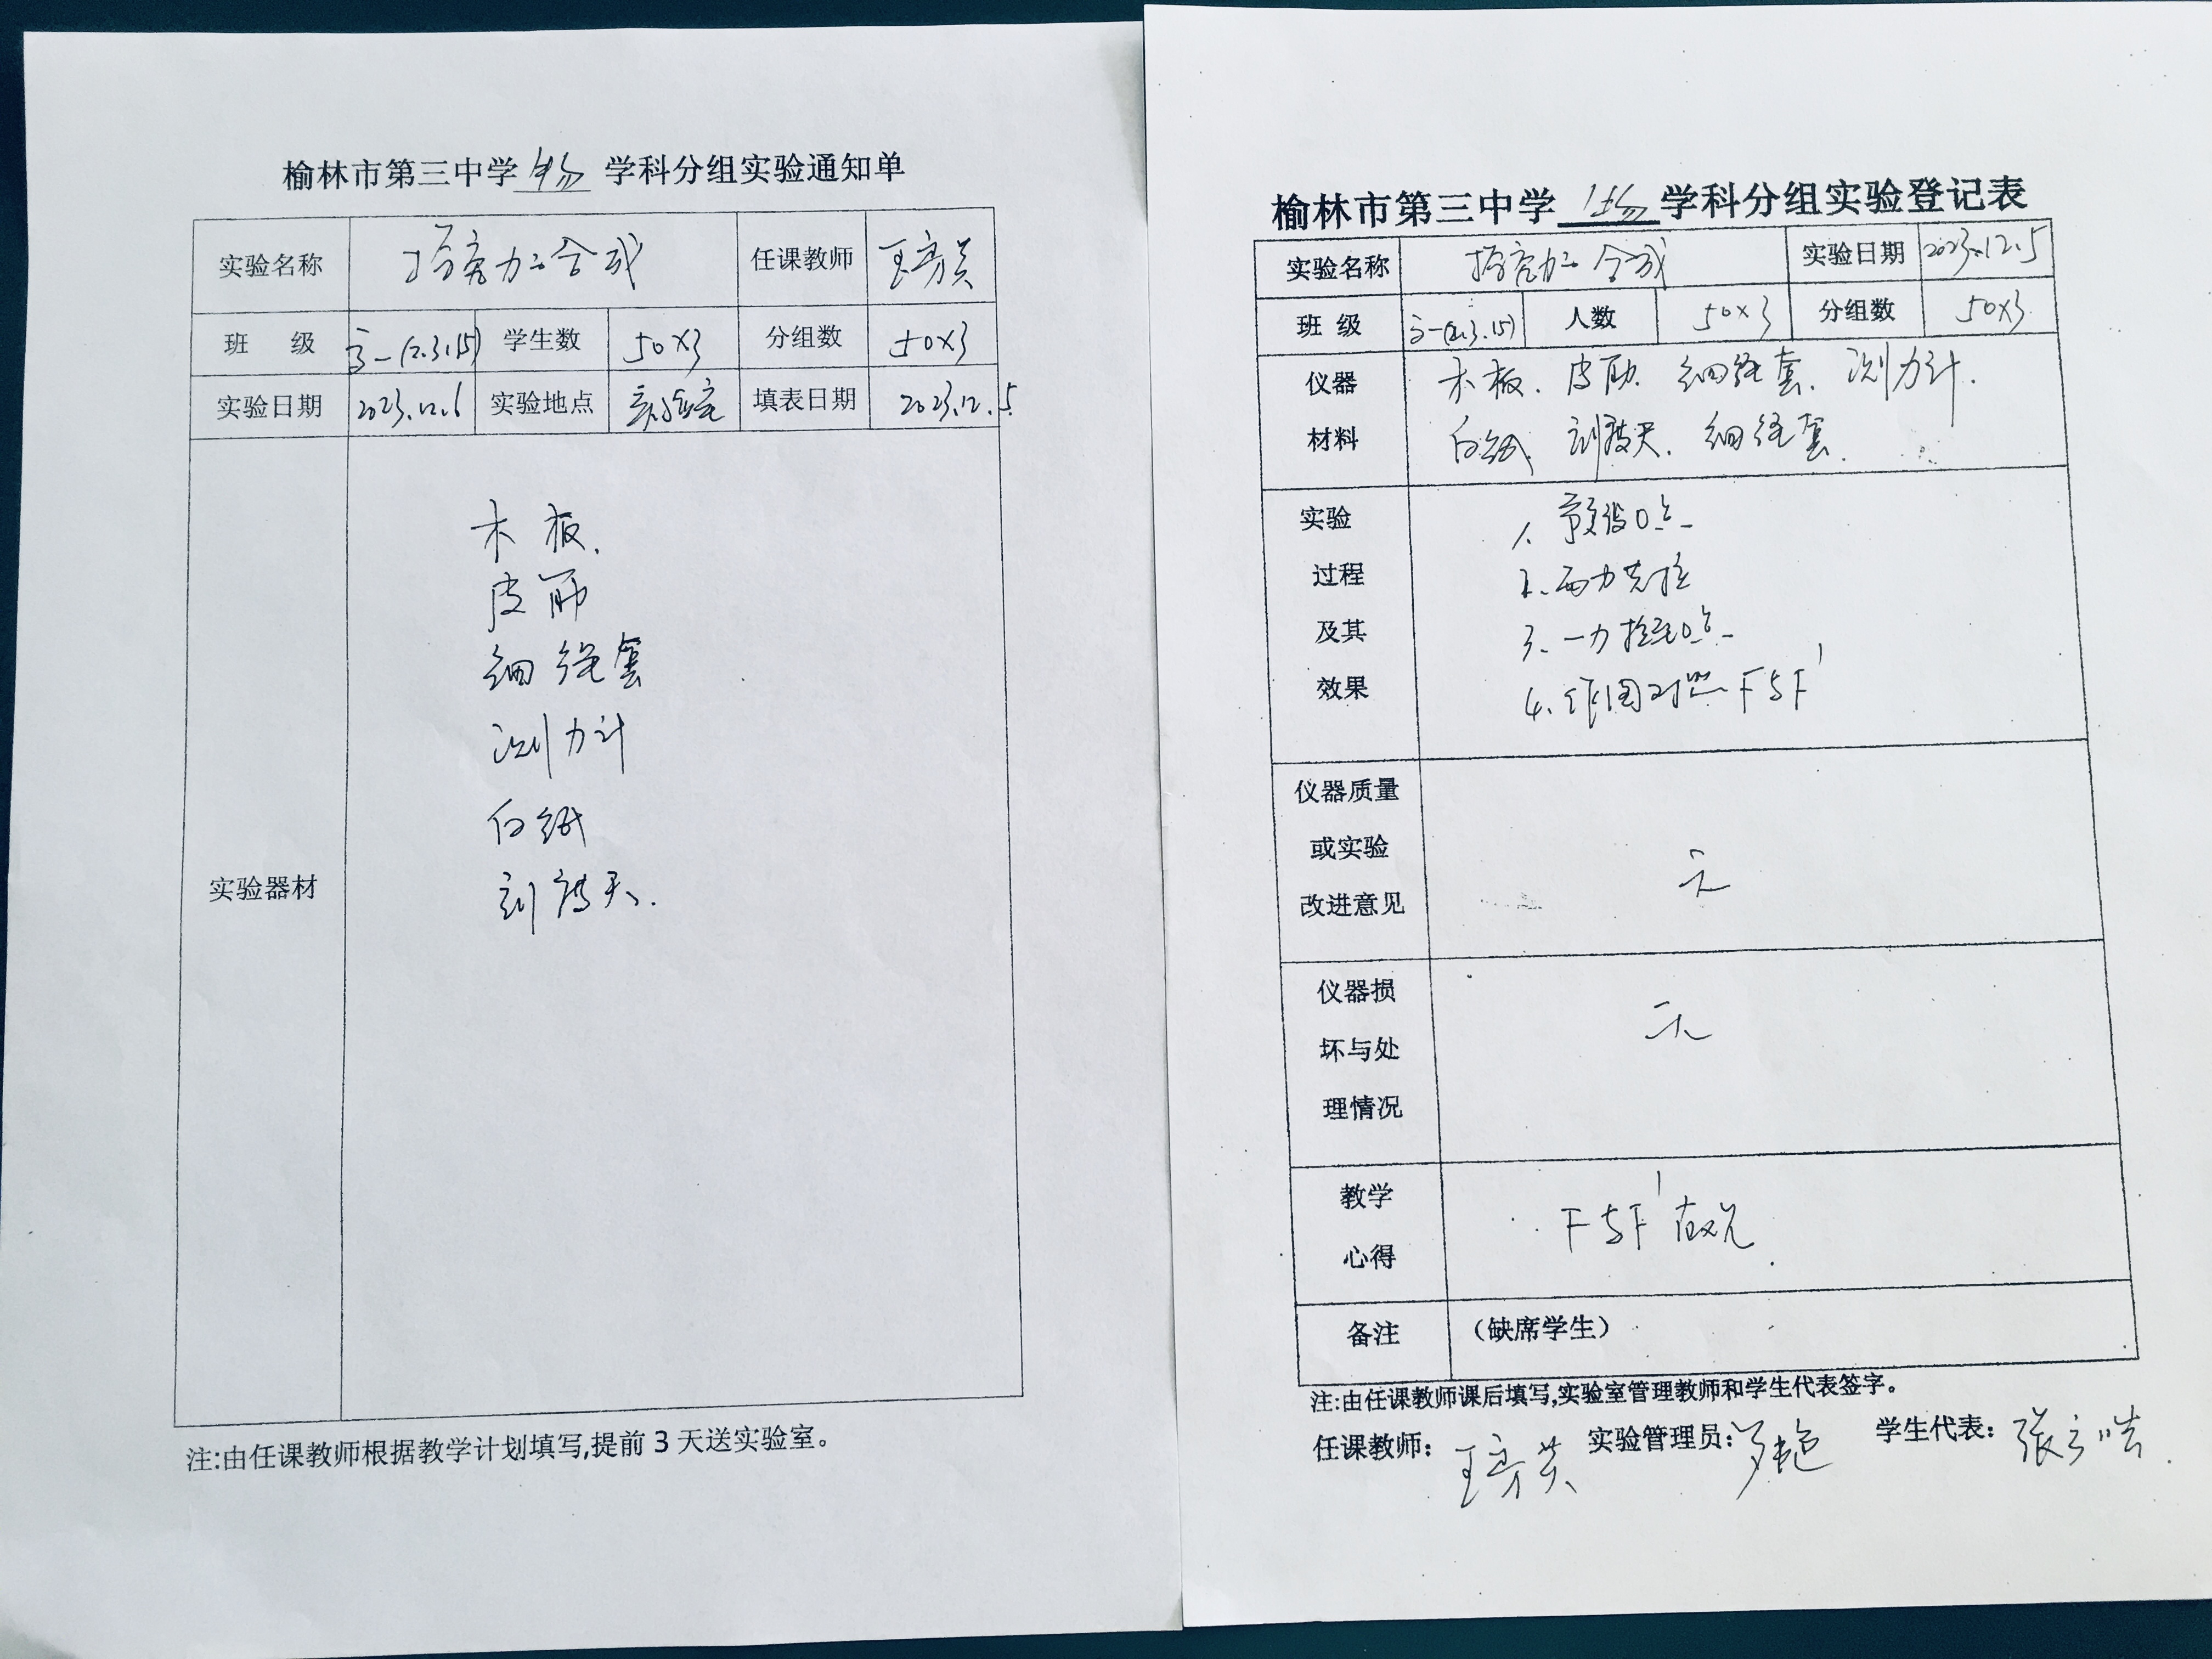 榆林市第三中学 物 学科分组实验通知单
实验名称 探究力的合成 任课教师 王芳芸
班 级 高一(2.3.15) 学生数 50×3 分组数 50×3
实验日期 2023.12.6 实验地点 实验室 填表日期 2023.12.5
实验器材
木板、
皮筋
细绳套
测力计
白纸
刻度尺.
注:由任课教师根据教学计划填写,提前 3 天送实验室。
榆林市第三中学 物 学科分组实验登记表
实验名称 探究力的合成 实验日期 2023.12.5
班 级 高一(2.3.15) 人数 50×3 分组数 50×3
仪器材料
木板、皮筋、细绳套、测力计.
白纸、刻度尺、细绳套.
实验过程及其效果
1、预设O点
2、两力先拉
3、一力拉至O点
4、作图对照F与F'
仪器质量或实验改进意见
无
仪器损坏与处理情况
无
教学心得
F与F'
备注 (缺席学生)
注:由任课教师课后填写,实验室管理教师和学生代表签字。
任课教师: 王芳芸 实验管理员: 罗艳 学生代表: 张